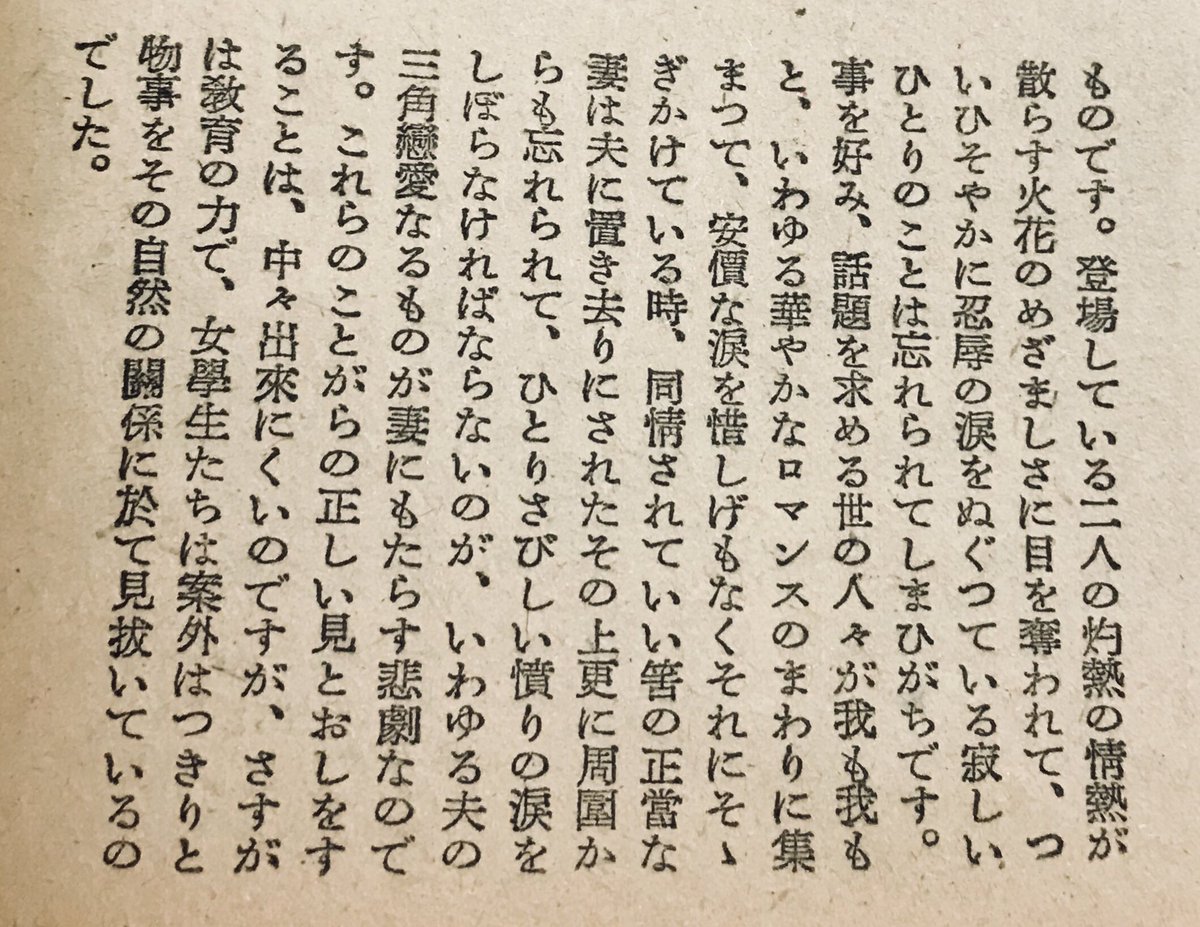 ものです。登場している二人の灼熱の情熱が
散らす火花のめざましさに目を奪われて、つ
いひそやかに忍辱の涙をぬぐつている寂しい
ひとりのことは忘れられてしまひがちです。
事を好み、話題を求める世の人々が我も我も
と、いわゆる華やかなロマンスのまわりに集
まつて、安價な涙を惜しげもなくそれにそゝ
ぎかけている時、同情されていい筈の正當な
妻は夫に置き去りにされたその上更に周圍か
らも忘れられて、ひとりさびしい憤りの涙を
しぼらなければならないのが、いわゆる夫の
三角戀愛なるものが妻にもたらす悲劇なので
す。これらのことがらの正しい見とおしをす
ることは、中々出來にくいのですが、さすが
は敎育の力で、女學生たちは案外はつきりと
物事をその自然の關係に於て見拔いているの
でした。